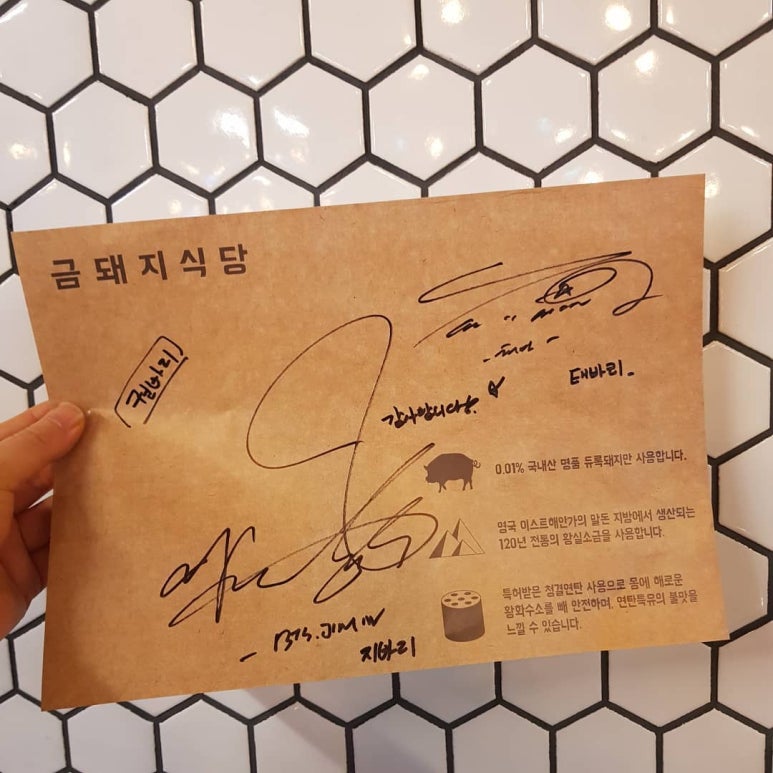 금돼지식당
감사합니다!
태바리
0.01% 국내산 명품 듀록돼지만 사용합니다.
영국 미스트해안가의 말돈 지방에서 생산되는
120년 전통의 황실소금을 사용합니다.
특허받은 청결연탄 사용으로 몸에 해로운
황화수소를 빼 안전하며, 연탄특유의 불맛을
느낄 수 있습니다.
- BTS. JIMIN
지바리